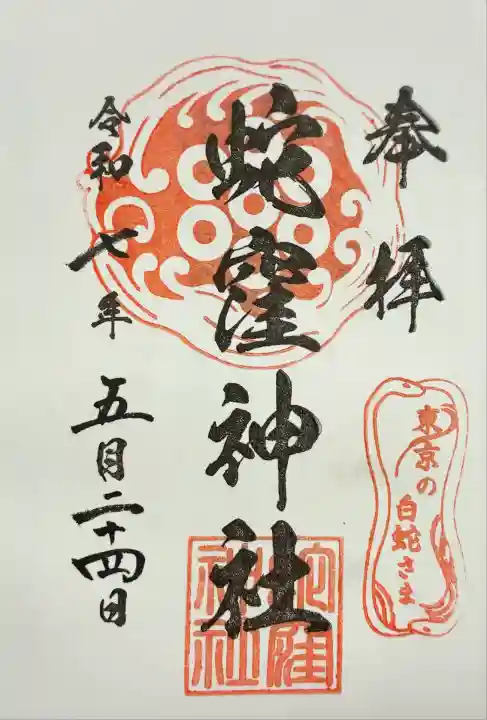 奉拝
蛇窪神社
令和七年
五月二十四日
東京の
白蛇さま
蛇窪
神社